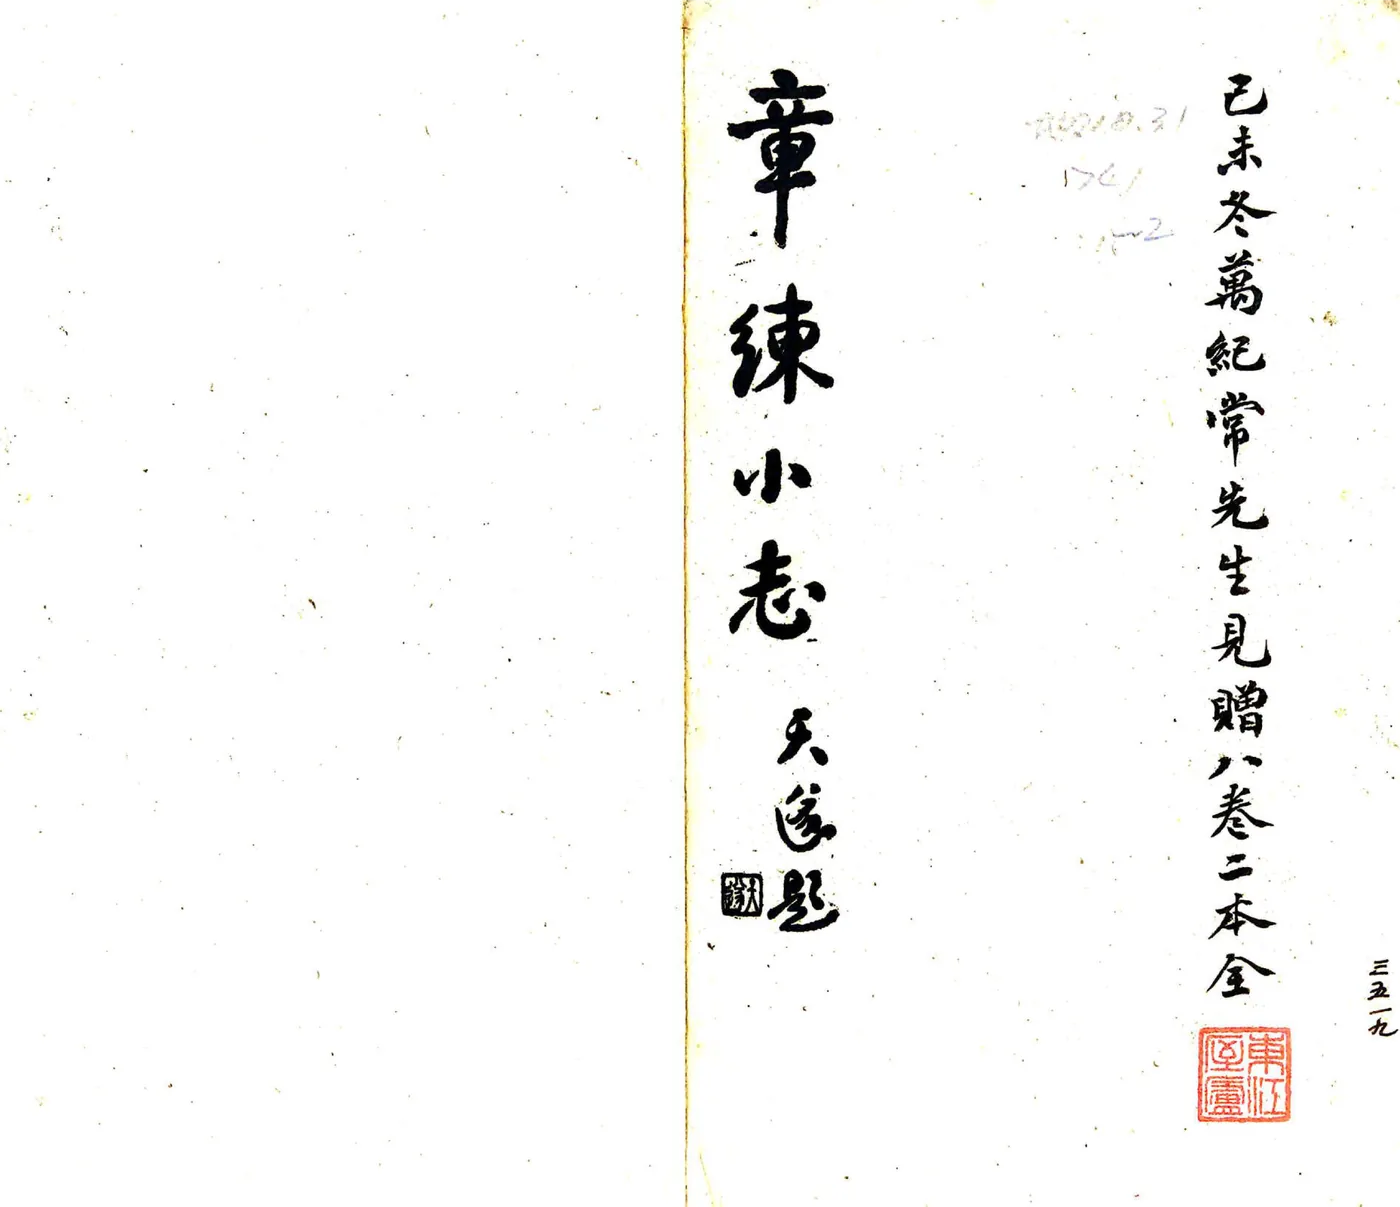 己未冬萬紀常先生見贈八卷二本全
東江
廬
三五一九
章練小志
天遂題
天遂